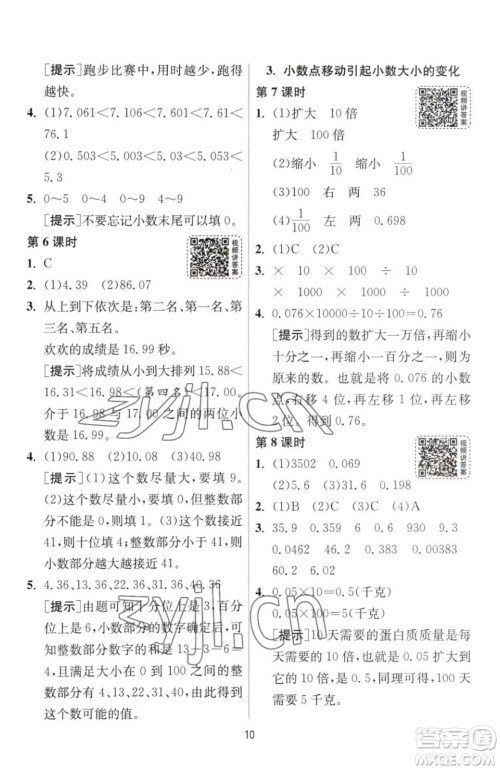 [提示]跑步比赛中,用时越少,跑得
越快。
4. (1)7.061<7.603<7.61<
76.1
(2)0.503<5.003<5.03<
5.3
5. 0～5 0～4 0～9 4～9
[提示]不要忘记小数末尾可以填 0。
第 6 课时
视频讲答案
1. C
2. (1)4.39 (2)86.07
3. 从上到下依次是:第二名、第一名、第
三名、第五名。
欢欢的成绩是 16.99 秒。
[提示]将成绩从小到大排列 15.88<
16.31<16.98<(第四名)<17.00。
介于 16.98 与 17.00 之间的两位小
数是 16.99。
4. (1)90.88 (2)90.08 (3)40.98
[提示](1)这个数尽量大,要填 9。(2)
这个数尽量小,要填 0,但若整数部
分是 0,则填 1。(3)这个数接近
41,则十位填 4。整数部分小于 41,
小数部分越大越接近 41。
5. 4.36、13.36、22.36、31.36、40.36
[提示]由题可知十分位上是 3,百分
位上是 6,小数部分的数字确定后,可
知整数部分数字和为 13-3-6=4,
且满足大小在 0 到 100 之间的整数
部分有 4、13、22、31、40,由此可知这
个数可能的值。
3. 小数点移动引起小数大小的变化
第 7 课时
视频讲答案
1. (1)扩大 10 倍
扩大 100 倍
(2)缩小 1/10 缩小 1/100
(3)100 右 两 36
(4)1/100 左 两 0.698
2. (1)B (2)C
3. × 10 × 100 ÷ 10
÷ 100 × 1000 ÷ 1000
4. 0.076×10000÷10÷100=0.76
[提示]一个数扩大一万倍,再缩小
十分之一,再缩小一百分之一,即为
原来的数。也就是将 0.076 的小数
点,右移 4 位,再左移 1 位,再左移
2 位。得到 0.76。
第 8 课时
视频讲答案
1. (1)3502 0.069
(2)0.198 15.6
2. (1)B (2)C (3)A (4)C
3. 35.9 6.3 360 0.359
0.0462 0.45 3.38 462
0.0382 0.01 0.01 3820
4. 0.05×100=5(千克)
0.05×10=0.5(千克)
[提示]10 天需要的蛋白质质量是
每天需要的 10 倍,也就是 0.05 扩大
到它的 10 倍,是 0.5,同理可得,100
天需要 5 千克。
10
zyjl.cn
zyjl.cn